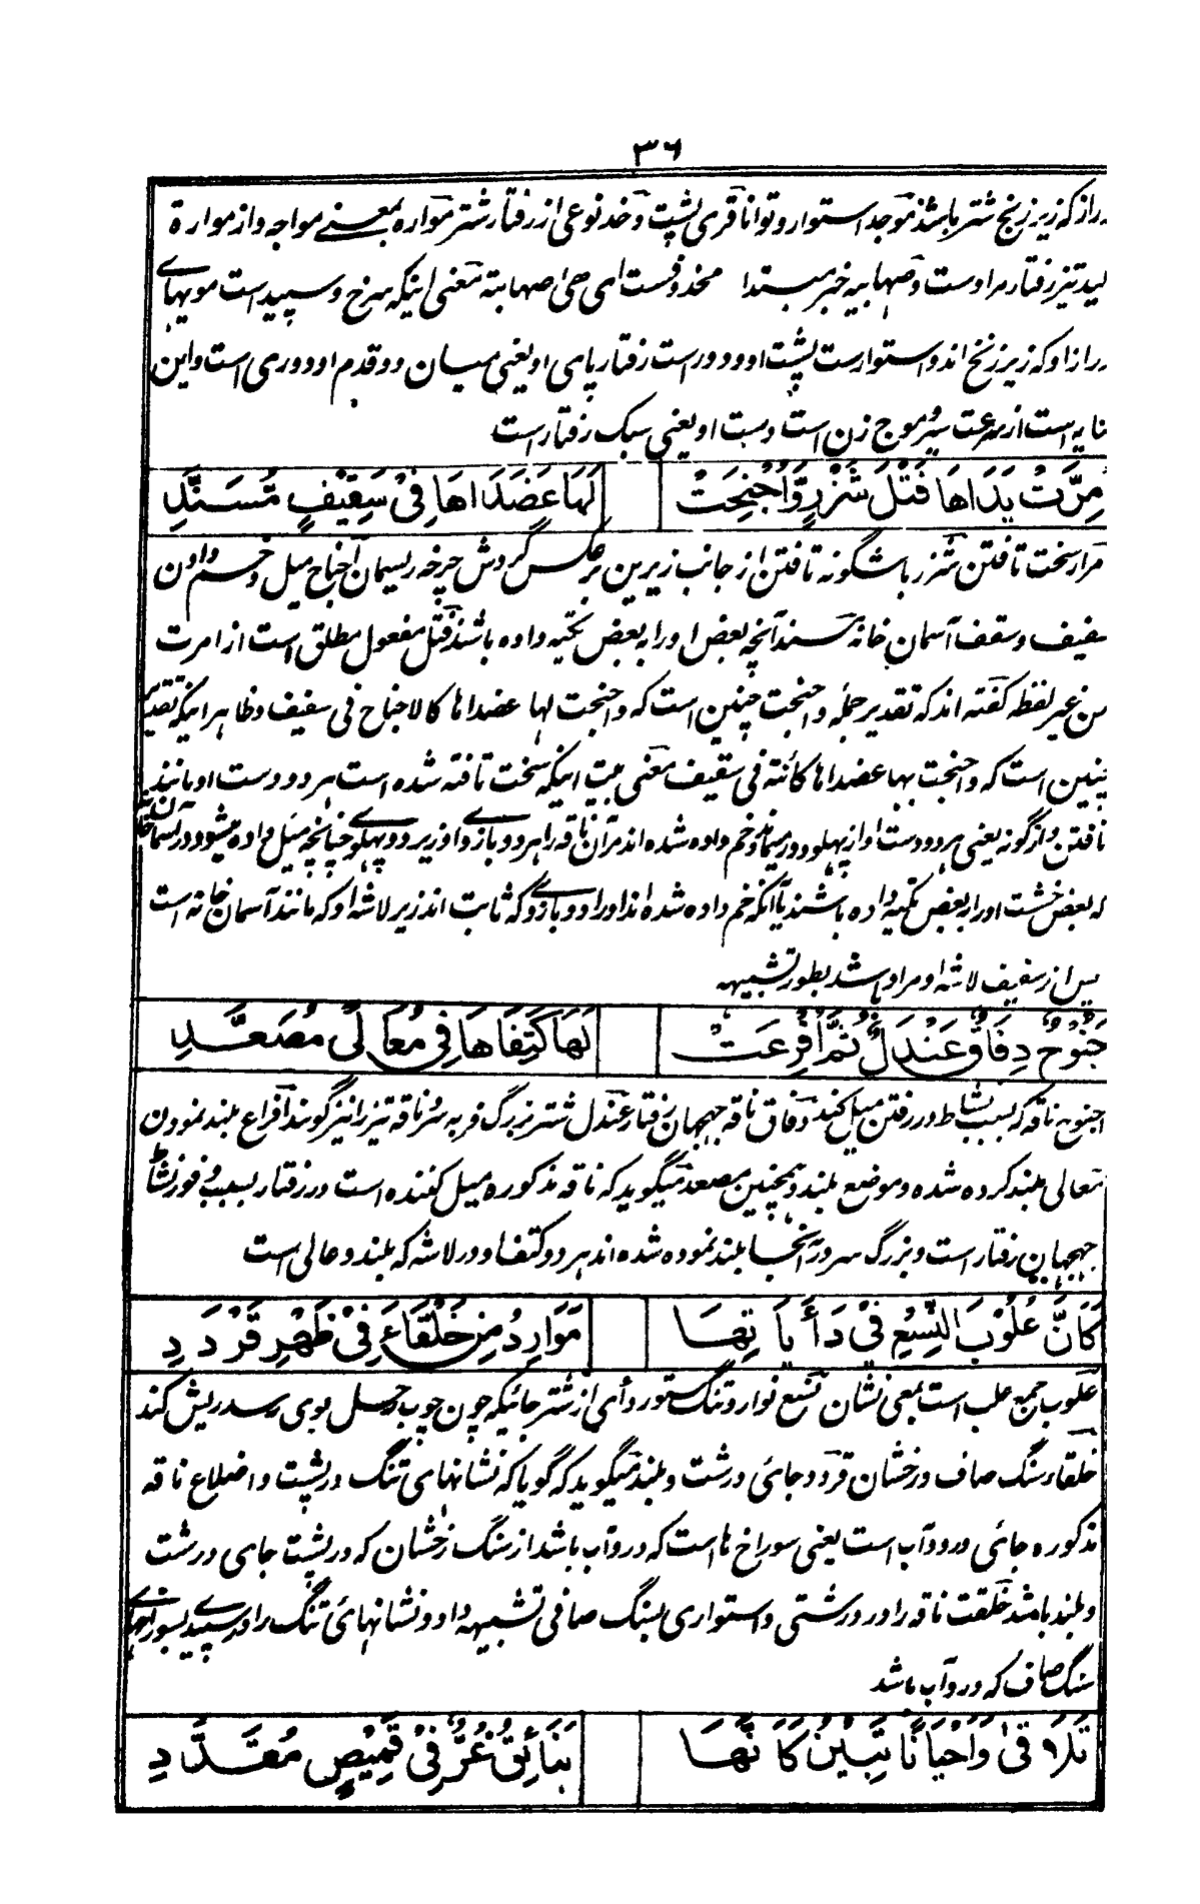 ۳۶
دراز که زیر زنخ شتر باشد موجد استوار و توانا قری پشت وخد نوعی از رفتار شتر مواره بمعنے مواجه و از موارة
لید تیز رفتار مراد ست و صهابیه خبر مبتدا محذوفست ای هی صهابیة معنی اینکه سرخ و سپید است مویهای
دراز او که زیر زنخ اند و استوار ست پشت او و دورست رفتار پای او یعنی میان دو قدم او دوری است و این
نایه است از سرعت سیر و موج زن است دست او یعنی سبک رفتار است
مِرَّتْ يَدَاهَا فَتْلَ شَزْرٍ وَّاُجْنِحَتْ لَهَا عَضَدَاهَا فِیْ سَقِيْفٍ مُّسَنَّدِ
مرار سخت تافتن شزر باشگونه تافتن از جانب زیرین بر عکس گردش چرخه ریسمان اجناح میل و خم دادن
سقیف و سقف آسمان خانه مسند آنچه بعض او را به بعض تکیه داده باشند فتل مفعول مطلق است از امرت
من غیر لفظه گفته اند که تقدیر جمله واجنحت چنین است که واجنحت لها عضداها کالاجناح فی سقیف و ظاهر اینکه تقدیر
چنین است که واجنحت بها عضداها کائنة فی سقیف معنی بیت اینکه سخت تافته شده است هر دو دست او مانند
تافتن واژگونه یعنی هر دو دست او از پهلو دور میماند و خم داده شده اند مر آن ناقه را هر دو بازوے او زیر دو پهلوے چنانچه میل داده میشود در آسمان خانه
که بعض خشت او را به بعض تکیه داده باشند یا آنکه خم داده شده اند او را دو بازوے که ثابت اند زیر لاشه او که مانند آسمان خانه است
پس از سقیف لاشه او مراد باشد بطور تشبیهه
جَنُوْحٌ دِفَاقٌ عَنْدَلٌ ثُمَّ اُفْرِعَتْ لَهَا كَتِفَاهَا فِیْ مُعَالًی مُصَعَّدِ
جنوح ناقه که بسبب نشاط در رفتن میل کند دفاق ناقه جهجهان رفتار عندل شتر بزرگ فربه سر و ناقه تیز را نیز گویند افراع بلند نمودن
معالی بلند کرده شده و موضع بلند و همچنین مصعد میگوید که ناقه مذکوره میل کننده است در رفتار بسبب وفور نشاط
جهجهان رفتار است و بزرگ سر و در آنجا بلند نموده شده اند هر دو کتف او در لاشه که بلند و عالی است
كَاَنَّ عُلُوْبَ النِّسْعِ فِیْ دَأَيَاتِهَا مَوَارِدُ مِنْ خَلْقَاءَ فِیْ ظَهْرِ قَرْدَدِ
علوب جمع علب است بمعنی نشان نسع نوار و تنگ ستور دأی از شتر جائیکه چون چوب رحل بوی رسد ریش کند
خلقاء سنگ صاف درخشان قردد جائ درشت و بلند میگوید که گویا که نشانهای تنگ در پشت و اضلاع ناقه
مذکوره جائی ورود آب است یعنی سوراخ ها است که درو آب باشد از سنگ رخشان که در پشت جای درشت
و بلند باشد خلقت ناقه را در درشتی و استواری بسنگ صافی تشبیهه داد و نشانهائ تنگ را در سپیدے بسوراخهاے
سنگ صاف که درو آب باشد
تَلَاقٰی وَاَحْيَانًا تَبِيْنُ كَاَنَّهَا بَنَائِقُ غُرٌّ فِیْ قَمِيْصٍ مُقَدَّدِ